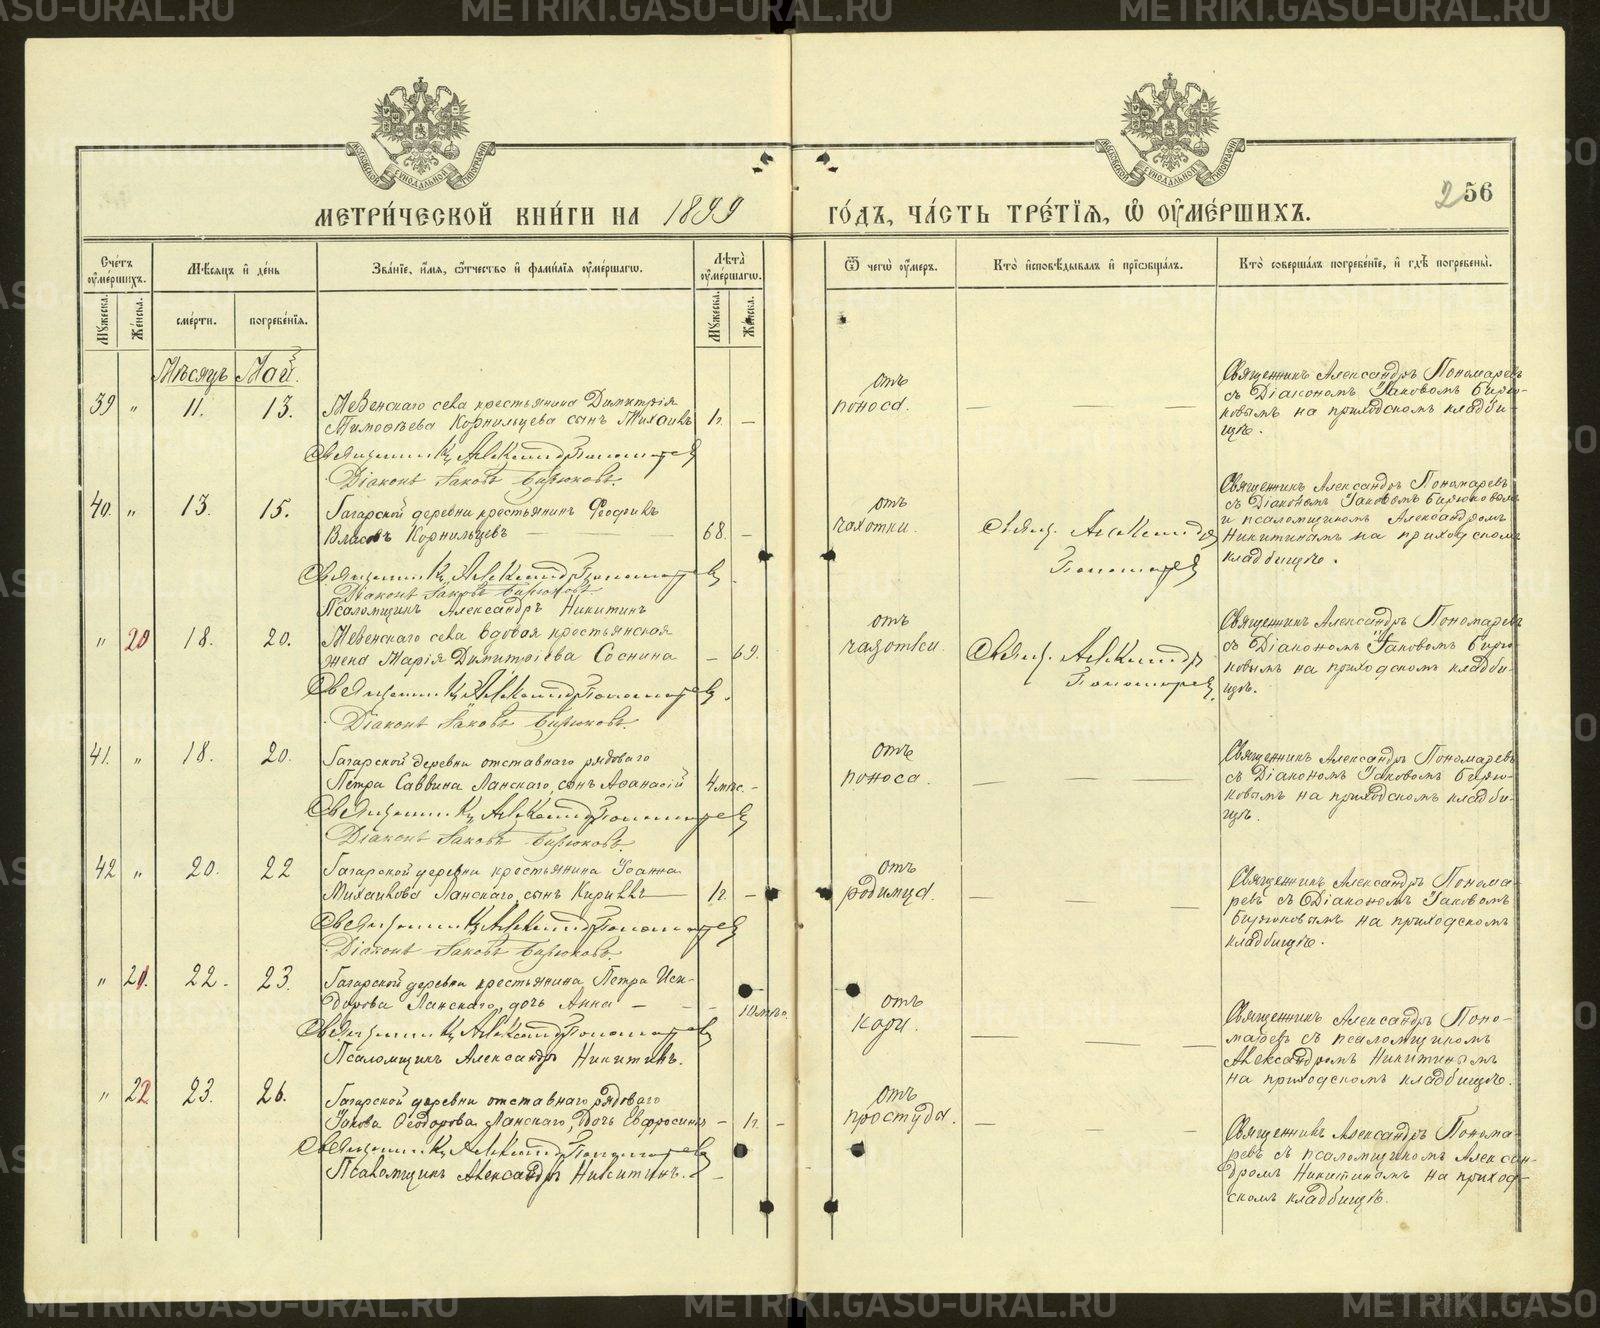 МЕТРИ́ЧЕСКОЙ КНИ́ГИ НА 1899
ГО́ДЪ, ЧА́СТЬ ТРЕ́ТЇЯ, Ѡ ОУ҆МЕ́РШИХЪ.
256
Сче́тъ оу҆ме́ршихъ.
Мѣ́сяцъ и҆ де́нь
Зва́нїе, и҆́мя, ѻ҆́тчество и҆ фами́лїя оу҆ме́ршагѡ.
Лѣ́та оу҆ме́ршагѡ.
Ѿ чегѡ̀ оу҆́меръ.
Кто̀ и҆сповѣ́дывалъ и҆ прїѡбща́лъ.
Кто̀ соверша́лъ погребе́нїе, и҆ гдѣ̀ погребены̀.
Мꙋ́жеска.
Же́нска.
сме́рти.
погребе́нїя.
Мꙋ́жеска.
Же́нска.
Мѣсяцъ Май.
39 " 11. 13.
Мезенскаго села крестьянина Димитрія
Тимоѳѣева Корнильцева сынъ Михаилъ 1 г. —
Священникъ Александръ Пономаревъ
Діаконъ Іаковъ Бирюковъ.
отъ
поноса.
— —
Священникъ Александръ Пономаревъ
съ Діакономъ Іаковомъ Бирю-
ковымъ на приходскомъ кладби-
щѣ.
40. " 13. 15.
Гагарской деревни крестьянинъ Ѳеофилъ
Власовъ Корнильцевъ — 68. —
Священникъ Александръ Пономаревъ
Діаконъ Іаковъ Бирюковъ
Псаломщикъ Александръ Никитинъ
отъ
чахотки.
Свящ. Александръ
Пономаревъ
Священникъ Александръ Пономаревъ
съ Діакономъ Іаковомъ Бирюковомъ
и псаломщикомъ Александромъ
Никитинымъ на приходскомъ
кладбищѣ.
" 20 18. 20.
Мезенскаго села вдовая крестьянская
жена Марія Димитріева Соснина — 69.
Священникъ Александръ Пономаревъ
Діаконъ Іаковъ Бирюковъ.
отъ
чахотки.
Свящ. Александръ
Пономаревъ.
Священникъ Александръ Пономаревъ
съ Діакономъ Іаковомъ Бирю-
ковымъ на приходскомъ кладби-
щѣ.
41. " 18. 20.
Гагарской деревни отставнаго рядоваго
Петра Саввина Ланскаго, сынъ Аѳанасій 4 мѣс. -
Священникъ Александръ Пономаревъ
Діаконъ Іаковъ Бирюковъ.
отъ
поноса.
— —
Священникъ Александръ Пономаревъ
съ Діакономъ Іаковомъ Бирю-
ковымъ на приходскомъ кладби-
щѣ.
42 " 20. 22
Гагарской деревни крестьянина Іоанна
Михаилова Ланскаго, сынъ Кириллъ — 1 г. —
Священникъ Александръ Пономаревъ
Діаконъ Іаковъ Бирюковъ.
отъ
родимца.
— — —
Священникъ Александръ Понома-
ревъ съ Діакономъ Іаковомъ
Бирюковымъ на приходскомъ
кладбищѣ.
" 21. 22. 23.
Гагарской деревни крестьянина Петра Иси-
дорова Ланскаго, дочь Анна — — — 10 мѣс.
Священникъ Александръ Пономаревъ
Псаломщикъ Александръ Никитинъ.
отъ
кори.
— — —
Священникъ Александръ Поно-
маревъ съ псаломщикомъ
Александромъ Никитинымъ
на приходскомъ кладбищѣ.
" 22 23. 26.
Гагарской деревни отставнаго рядоваго
Іакова Ѳеодорова Ланскаго, дочь Евфросинія — 1 г. -
Священникъ Александръ Пономаревъ
Псаломщикъ Александръ Никитинъ. —
отъ
простуды.
— — —
Священникъ Александръ Понома-
ревъ съ псаломщикомъ Алексан-
дромъ Никитиномъ на приход-
скомъ кладбищѣ.
METRIKI.GASO-URAL.RU